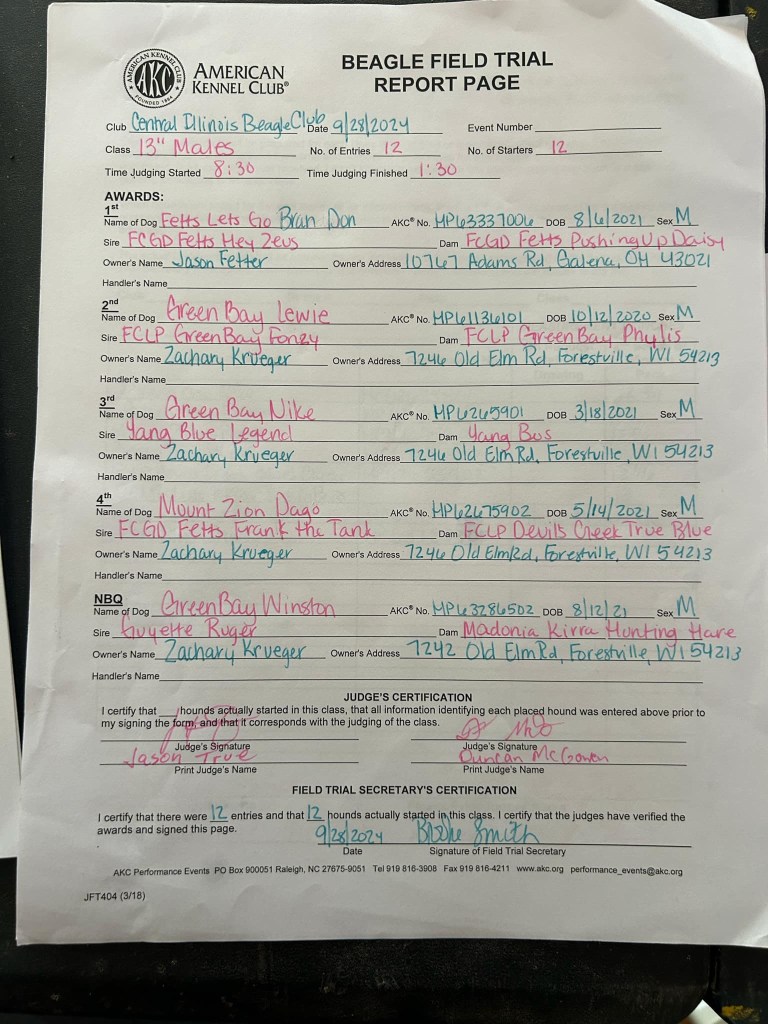 AMERICAN KENNEL CLUB
AKC
FOUNDED 1884
AMERICAN
KENNEL CLUB®
BEAGLE FIELD TRIAL
REPORT PAGE
Club Central Illinois Beagle Club Date 9/28/2024 Event Number
Class 13" Males No. of Entries 12 No. of Starters 12
Time Judging Started 8:30 Time Judging Finished 1:30
AWARDS:
1st
Name of Dog Fetts Lets Go Bran Don AKC® No. HP63337006 DOB 8/6/2021 Sex M
Sire FCGD Fetts Hey Zeus Dam FCGD Fetts Pushing Up Daisy
Owner's Name Jason Fetter Owner's Address 10767 Adams Rd, Galena, OH 43021
Handler's Name
2nd
Name of Dog Green Bay Lewie AKC® No. HP61136101 DOB 10/12/2020 Sex M
Sire FCLP Green Bay Fonzy Dam FCLP Green Bay Phylis
Owner's Name Zachary Krueger Owner's Address 7246 Old Elm Rd, Forestville, WI 54213
Handler's Name
3rd
Name of Dog Green Bay Nike AKC® No. HP6265901 DOB 3/18/2021 Sex M
Sire Yang Blue Legend Dam Yang Bus
Owner's Name Zachary Krueger Owner's Address 7246 Old Elm Rd, Forestville, WI 54213
Handler's Name
4th
Name of Dog Mount Zion Dago AKC® No. HP62675902 DOB 5/14/2021 Sex M
Sire FCGD Fetts Frank the Tank Dam FCLP Devils Creek True Blue
Owner's Name Zachary Krueger Owner's Address 7246 Old Elm Rd, Forestville, WI 54213
Handler's Name
NBQ
Name of Dog Green Bay Winston AKC® No. HP63286502 DOB 8/12/21 Sex M
Sire Guyette Ruger Dam Madonia Kirra Hunting Hare
Owner's Name Zachary Krueger Owner's Address 7242 Old Elm Rd, Forestville, WI 54213
Handler's Name
JUDGE'S CERTIFICATION
I certify that hounds actually started in this class, that all information identifying each placed hound was entered above prior to
my signing the form, and that it corresponds with the judging of the class.
Judge's Signature Judge's Signature
Jason True Duncan McGowen
Print Judge's Name Print Judge's Name
FIELD TRIAL SECRETARY'S CERTIFICATION
I certify that there were 12 entries and that 12 hounds actually started in this class. I certify that the judges have verified the
awards and signed this page.
9/28/2024 Smith
Date Signature of Field Trial Secretary
AKC Performance Events PO Box 900051 Raleigh, NC 27675-9051 Tel 919 816-3908 Fax 919 816-4211 www.akc.org performance_events@akc.org
JFT404 (3/18)